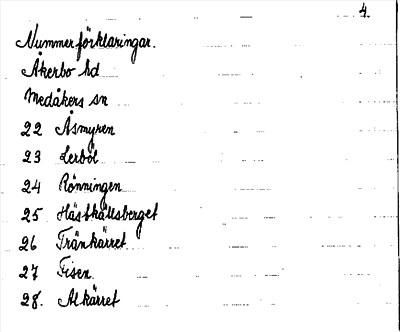 4.
Nummerförklaringar.
Åkerbo hd
Medåkers sn
22 Åsmyren
23 Lerböl
24 Rönningen
25 Hästkällsberget
26 Tränkärret
27 Fisen.
28. Alkärret